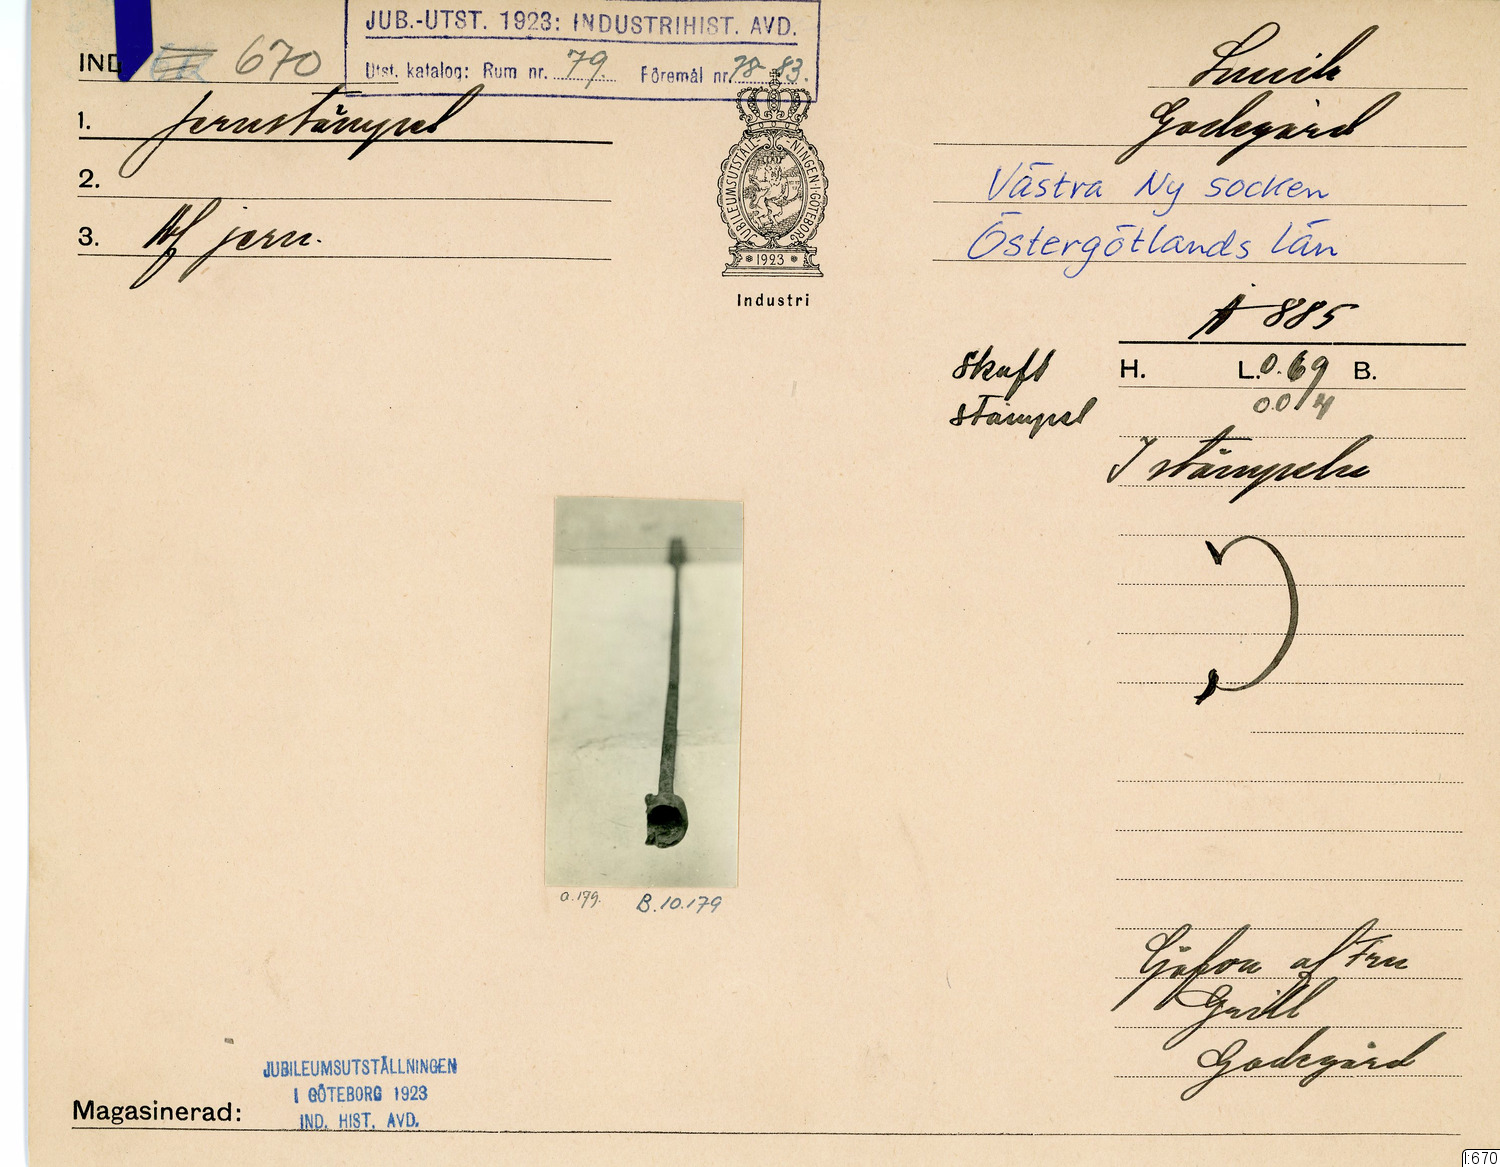 JUB.-UTST. 1923: INDUSTRIHIST. AVD.
Utst. katalog: Rum nr. 79 Föremål nr. 78-83.
IND 670
1. Jernstämpel
2.
3. Af jern.
JUBILEUMSUTSTÄLL-NINGEN·I·GÖTEBORG
* 1923 *
Industri
Godegård
Västra Ny socken
Östergötlands län
Å 885
Skaft H. L. 0.69 B.
Stämpel 0.014
I stämpeln
C
o.179. B.10.179
Gåfva af Fru
Grill
Godegård
JUBILEUMSUTSTÄLLNINGEN
I GÖTEBORG 1923
IND. HIST. AVD.
Magasinerad:
I:670